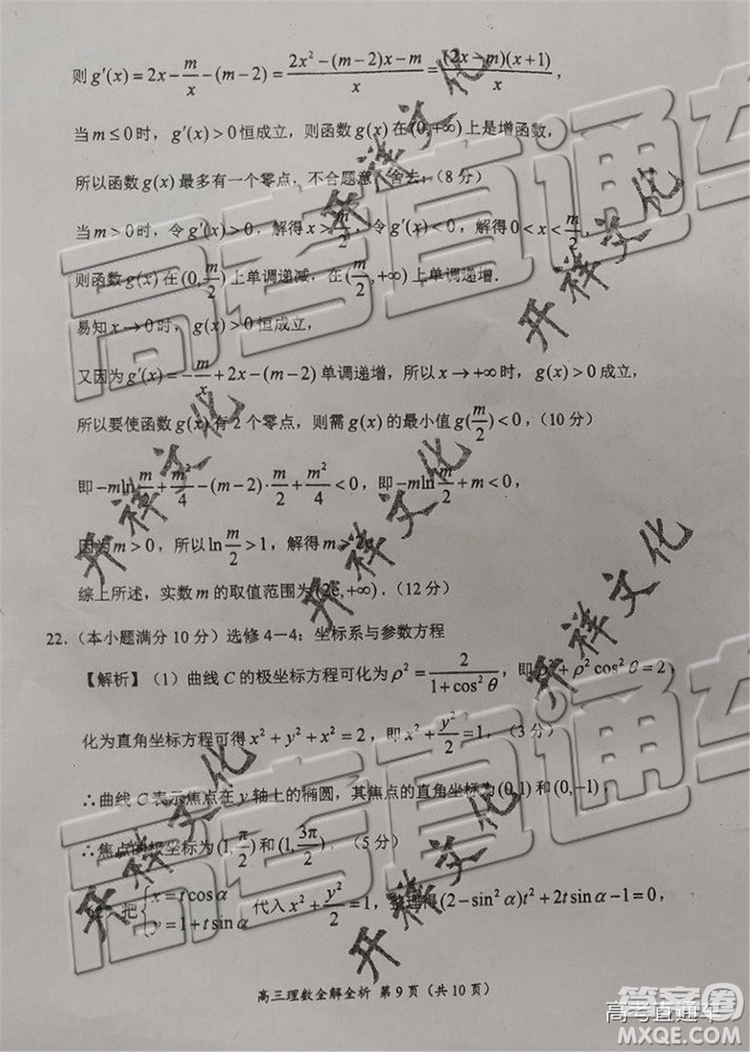 则 g′(x) = 2x − m/x − (m−2) = (2x² − (m−2)x − m)/x = (2x−m)(x+1)/x，
当 m ≤ 0 时，g′(x) > 0 恒成立，则函数 g(x) 在 (0,+∞) 上是增函数，
所以函数 g(x) 最多有一个零点，不合题意，舍去；（8 分）
当 m > 0 时，令 g′(x) > 0，解得 x > m/2，令 g′(x) < 0，解得 0 < x < m/2，
则函数 g(x) 在 (0, m/2) 上单调递减，在 (m/2, +∞) 上单调递增.
易知 x → 0 时，g(x) > 0 恒成立，
又因为 g′(x) = −m/x + 2x − (m−2) 单调递增，所以 x → +∞ 时，g(x) > 0 成立，
所以要使函数 g(x) 有 2 个零点，则需 g(x) 的最小值 g(m/2) < 0，（10 分）
即 −mln m/2 + m²/4 − (m−2)·m/2 + m²/4 < 0，即 −mln m/2 + m < 0，
因为 m > 0，所以 ln m/2 > 1，解得 m > 2e，
综上所述，实数 m 的取值范围为 (2e, +∞).（12 分）
22.（本小题满分 10 分）选修 4－4：坐标系与参数方程
【解析】（1）曲线 C 的极坐标方程可化为 ρ² = 2/(1+cos²θ)，即 ρ² + ρ²cos²θ = 2，
化为直角坐标方程可得 x² + y² + x² = 2，即 x² + y²/2 = 1，（3 分）
∴曲线 C 表示焦点在 y 轴上的椭圆，其焦点的直角坐标为 (0,1) 和 (0,−1)，
∴焦点的极坐标为 (1, π/2) 和 (1, 3π/2).（5 分）
把 { x = tcosα y = 1 + tsinα 代入 x² + y²/2 = 1，整理得 (2 − sin²α)t² + 2tsinα − 1 = 0，
高三理数全解全析 第 9 页（共 10 页）
高考直通车
高考直通车
开祥文化
开祥文化
开祥文化
开祥文化
开祥文化
开祥文化
开祥文化
高考直通车
答案圈
MXQE.COM